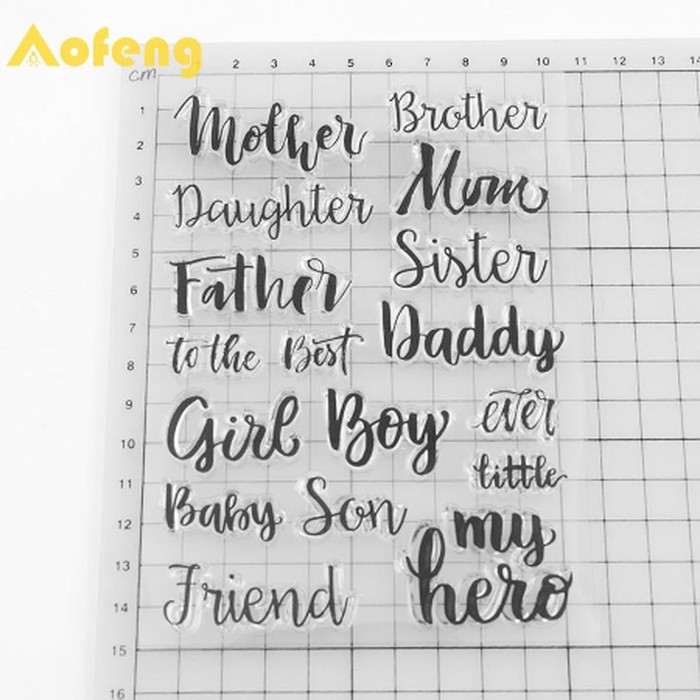 Aofeng
cm
2 3 4 5 6 7 8 9 10 11 12 13 14
1
2
3
4
5
6
7
8
9
10
11
12
13
14
15
16
Mother
Daughter
Father
to the Best
Girl Boy
Baby Son
Friend
Brother
Mom
Sister
Daddy
ever
little
my
hero